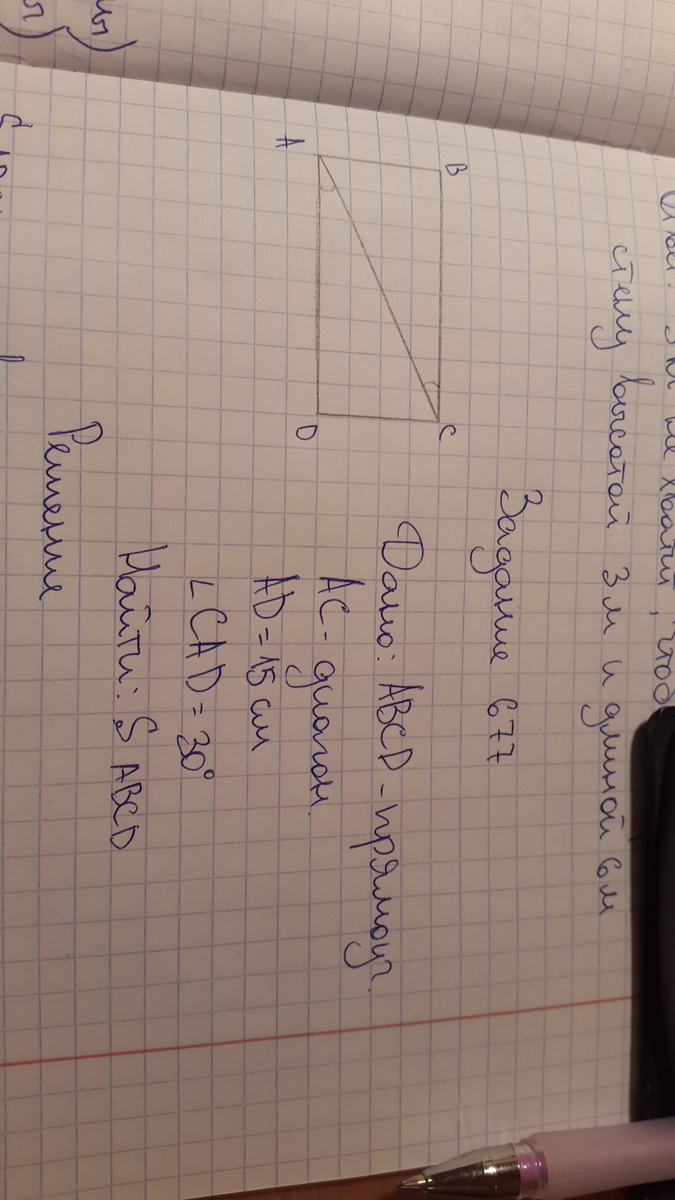 стену высотой 3 м и длиной 6 м
Задание 677
B
C
A
D
Дано: ABCD - прямоуг.
AC - диагон.
AD = 15 см
∠ CAD = 30°
Найти: S ABCD
Решение